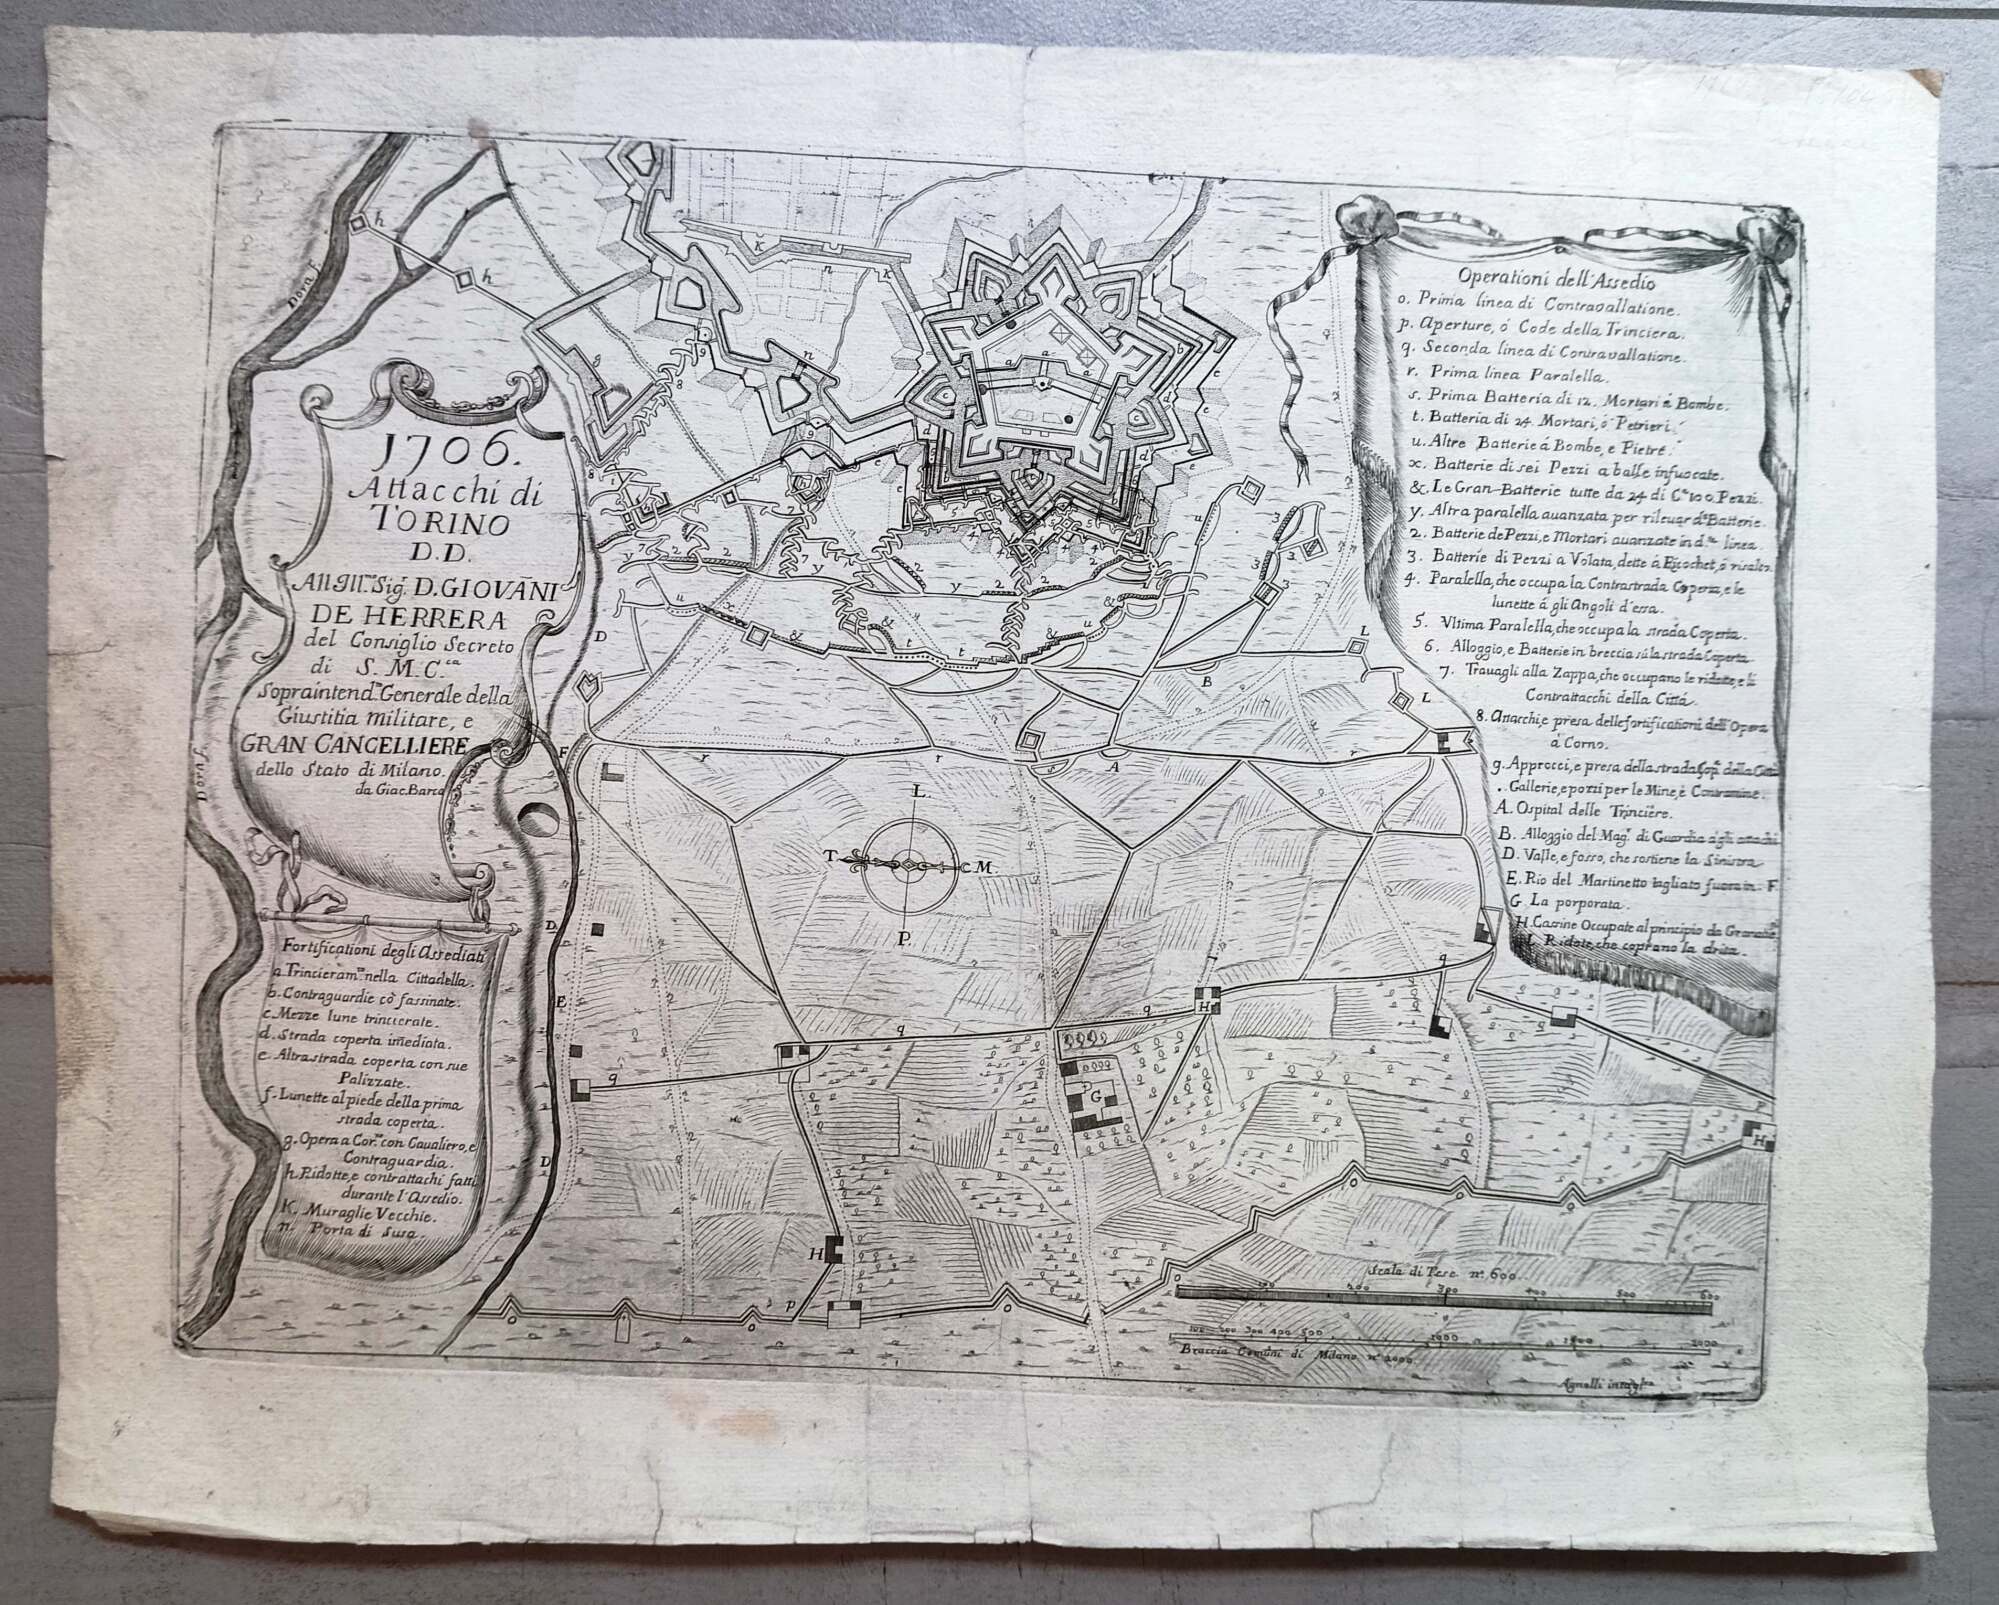 1706.
Attacchi di
TORINO
D. D.
All Ill.mo Sig.r D. GIOVANI
DE HERRERA
del Consiglio Secreto
di S. M. C.ca
Sopraintend.te Generale della
Giustitia militare, e
GRAN CANCELLIERE
dello Stato di Milano.
da Giac. Barca
Fortificationi degli Assediati
a. Trincieram.ti nella Cittadella.
b. Contraguardie cō fassinate.
c. Mezze lune trincierate.
d. Strada coperta imediata.
e. Altra strada coperta con sue
Palizzate.
f. Lunette al piede della prima
strada coperta.
g. Opera a Cor.no con Cavaliero, e
Contraguardia.
h. Ridotte, e contrattachi fatti
durante l'Assedio.
K. Muraglie Vecchie.
n. Porta di Susa.
Operationi dell'Assedio
o. Prima linea di Contravallatione.
p. Aperture, ó Code della Trinciera.
q. Seconda linea di Contravallatione.
r. Prima linea Paralella.
s. Prima Batteria di 12. Mortari á Bombe.
t. Batteria di 24. Mortari, ó Petrieri.
u. Altre Batterie á Bombe, e Pietre.
x. Batterie di sei Pezzi a balle infuocate.
&. Le Gran Batterie tutte da 24 di C.a 100 Pezzi.
y. Altra paralella avanzata per rilevar d.e Batterie.
2. Batterie de Pezzi, e Mortari avanzate in d.ta linea.
3. Batterie di Pezzi a Volata, dette á Ricochet, ó risalto.
4. Paralella, che occupa la Contrastrada Coperta, e le
lunette á gli Angoli d'essa.
5. Ultima Paralella, che occupa la strada Coperta.
6. Alloggio, e Batterie in breccia sú la strada Coperta
7. Travagli alla Zappa, che occupano le ridotte, e li
Contrattacchi della Cittá.
8. Attacchi, e presa delle fortificationi dell'Opera
á Corno.
9. Approcci, e presa della strada Cop.ta della Cittá
. Gallerie, e pozzi per le Mine, é Contramine.
A. Ospital delle Trinciere.
B. Alloggio del Mag.r di Guardia á gli attachi
D. Valle, e fosso, che sostiene la Sinistra
E. Rio del Martinetto tagliato fuora in F
G. La porporata.
H. Cassine Occupate al principio da
L. Ridotte, che coprano la drita.
Dora f.
Dora f.
L.
T
M.
P.
Scala di Tese n.o 600.
100 200 300 400 500 600
100 200 300 400 500 1000 1500 2000
Braccia Comuni di Milano n.o 2000.
Agnelli